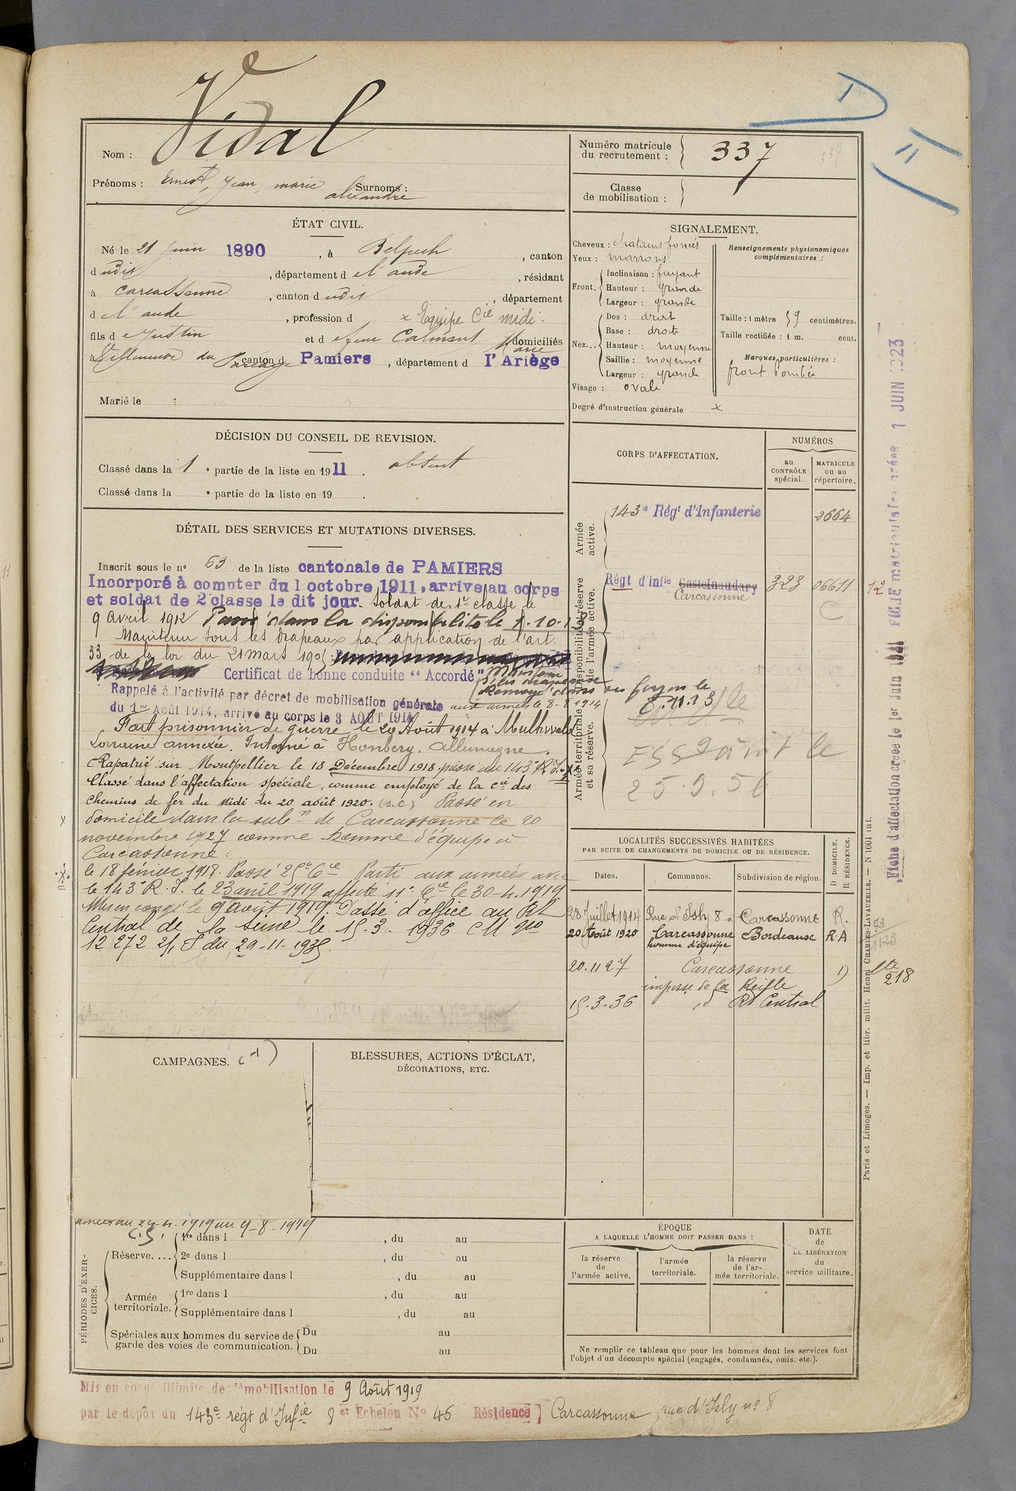 Vidal
Nom :
Prénoms : Ernest, Jean, marie Surnoms :
alexandre
Numéro matricule
du recrutement : 337
Classe
de mobilisation :
ÉTAT CIVIL.
Né le 21 juin 1890, à Belpech, canton
dudis, département de l'aude, résidant
à Carcassonne, canton dudis, département
de l'aude, profession d x Equipe Cie midi.
fils de Justin et de feue Calmont Marie domiciliés
canton d Pamiers, département d l'Ariège
Marié le :
SIGNALEMENT.
Cheveux : chatains foncés
Yeux : marrons
Front. Inclinaison : fuyant
Hauteur : grande
Largeur : grande
Nez... Dos : droit
Base : droite
Hauteur : moyenne
Saillie : moyenne
Largeur : grande
Visage : ovale
Renseignements physionomiques
complémentaires :
Taille : 1 mètre 59 centimètres.
Taille rectifiée : 1 m. cent.
Marques particulières :
front bombé
Degré d'instruction générale x
DÉCISION DU CONSEIL DE REVISION.
Classé dans la 1e partie de la liste en 1911. absent
Classé dans la e partie de la liste en 19 .
DÉTAIL DES SERVICES ET MUTATIONS DIVERSES.
Inscrit sous le n° 63 de la liste cantonale de PAMIERS
Incorporé à compter du 1 octobre 1911, arrivé au corps
et soldat de 2e classe le dit jour. Soldat de 1e classe le
9 avril 1912 Passé dans la disponibilité le 1-10-13
Maintenu sous les drapeaux par application de l'art.
33 de la loi du 21 mars 1905
Certificat de bonne conduite "Accordé"
Maintenu
s/les drapeaux
Renvoyé dans ses foyers le
8.11.13
Rappelé à l'activité par décret de mobilisation générale
du 1er Août 1914, arrivé au corps le 3 AOUT 1914 aux armées le 8-8-1914
Fait prisonnier de guerre le 20 Août 1914 à
Lorraine annexée. Interné à Allemagne.
Rapatrié sur Montpellier le 18 Décembre 1918 passé au 143e R.I.
Classé dans l'affectation spéciale, comme employé de la Cie des
chemins de fer du Midi du 20 août 1920. (s.c.) Passé en
domicile dans la subon de Carcassonne le 20
novembre 1927 comme homme d'équipe à
Carcassonne.
le 18 fevrier 1918. Passé 25e Cie Parti aux armées avec
le 143e R.I. le 23 avril 1919 affecté 11e Cie le 30-4.1919
Mis en congé le 9 août 1919. Passé d'office au Rt
Central de la Seine le 15.3.1936 CM No
12272 2/1 S du 29-11-1935.
CORPS D'AFFECTATION.
NUMÉROS
au
CONTRÔLE
spécial.
MATRICULE
ou au
répertoire.
Armée
active.
143e Régt d'Infanterie 2664
Disponibilité et réserve
de l'armée active.
Régt d'infie Castelnaudary 323 06611
Carcassonne
C
12
Armée territoriale
et sa réserve.
le
25.9.56
LOCALITÉS SUCCESSIVES HABITÉES
PAR SUITE DE CHANGEMENTS DE DOMICILE OU DE RÉSIDENCE.
Dates. Communes. Subdivision de région.
D DOMICILE.
R RÉSIDENCE.
23 Juillet 1914 Rue d'Isly 8 à Carcassonne R.
20 Août 1920 Carcassonne Bordeaux R.A
homme d'équipe
20.11 27 Carcassonne D
impasse de la
15.3.36 id Rt Central
218
CAMPAGNES. (-1)
BLESSURES, ACTIONS D'ÉCLAT,
DÉCORATIONS, ETC.
armées du 24-4.1919 au 9-8-1919
(C.S).
PÉRIODES D'EXERCICES.
Réserve.... 1re dans l , du au
2e dans l , du au
Supplémentaire dans l , du au
Armée
territoriale. 1re dans l , du au
Supplémentaire dans l , du au
Spéciales aux hommes du service de
garde des voies de communication. Du au
Du au
ÉPOQUE
A LAQUELLE L'HOMME DOIT PASSER DANS :
la réserve
de
l'armée active.
l'armée
territoriale.
la réserve
de l'ar-
mée territoriale.
DATE
de
LA LIBÉRATION
du
service militaire.
Ne remplir ce tableau que pour les hommes dont les services font
l'objet d'un décompte spécial (engagés, condamnés, omis, etc.).
Mis en congé illimité de démobilisation le 9 Août 1919
par le dépôt du 143e régt d'Infie 8 er Echelon No 46 Résidence Carcassonne rue d'Isly no 8
Paris et Limoges. — Imp. et libr. milit. Henri CHARLES-LAVAUZELLE. — N 1001 int.
Fiche d'affectation créée le 1er Juin 1931
FICHE matriculaire créée 1 JUIN 1923